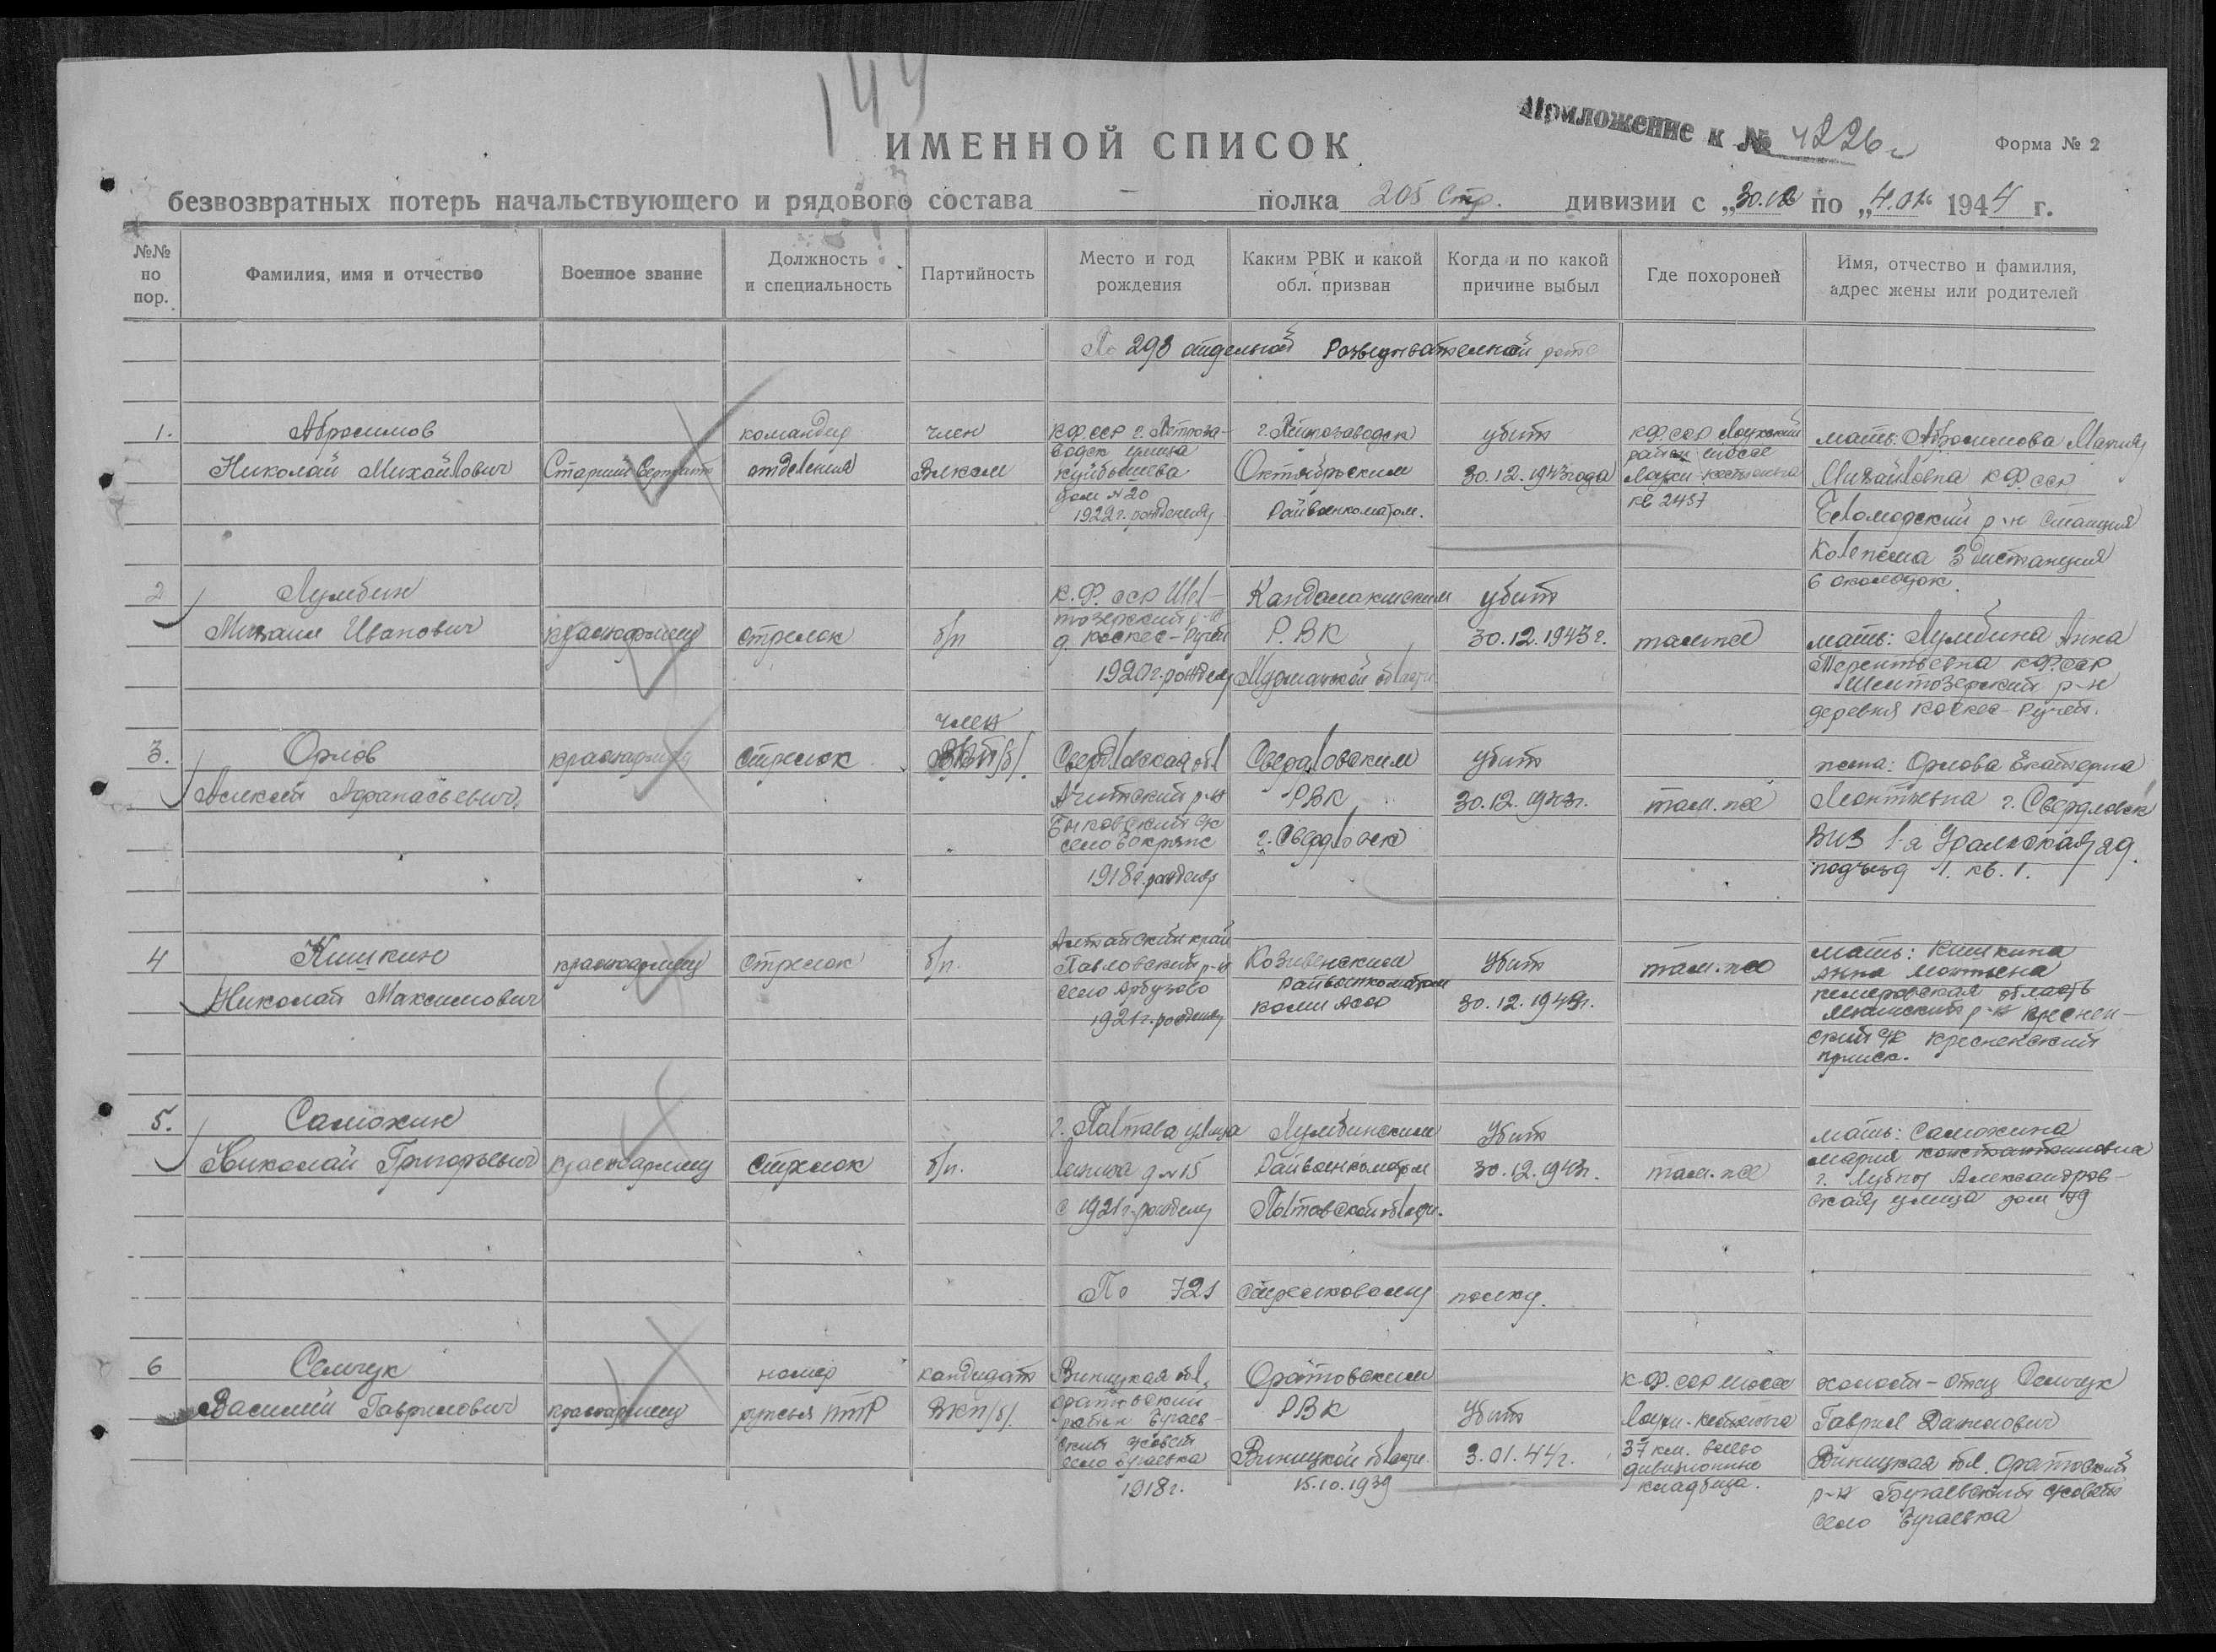 144
Приложение к № 4226с
Форма № 2
ИМЕННОЙ СПИСОК
безвозвратных потерь начальствующего и рядового состава — полка 205 Стр. дивизии с „30.12“ по „4.01“ 1944 г.
№№ по пор.
Фамилия, имя и отчество
Военное звание
Должность и специальность
Партийность
Место и год рождения
Каким РВК и какой обл. призван
Когда и по какой причине выбыл
Где похоронен
Имя, отчество и фамилия, адрес жены или родителей
По 298 отдельной Разведывательной роте
1.
Абросимов
Николай Михайлович
Старший Сержант
командир
отделения
член
Влксм
К.Ф.ССР г. Петроза-
водск улица
Куйбышева
дом № 20
1922 г. рождения
г. Петрозаводск
Октябрьским
Райвоенкоматом.
убит
30.12.1943 года
К.Ф.ССР Лоухский
район шоссе
Лоухи-Кестеньга
кв 2457
мать: Абросимова Мария
Михайловна К.Ф.ССР
Беломорский р-н Станция
Колежма 3 дистанция
6 околодок
2
Лумбин
Михаил Иванович
красноармеец
стрелок
б/п
К.Ф.ССР Шел-
тозерский р-н
д. Каскес-Ручей
1920 г. рождения
Кандалакшским
Р.ВК
Мурманской области
убит
30.12.1943 г.
там же
мать: Лумбина Анна
Терентьевна К.Ф.ССР
Шелтозерский р-н
деревня Каскес-Ручей.
3.
Орлов
Алексей Афанасьевич
красноармеец
стрелок
член
ВКП/б/.
Свердловская обл
Ачитский р-н
Быковский с/с
село Бакряж
1918 г. рождения
Свердловским
РВК
г. Свердловск
убит
30.12.1943 г.
там-же
жена: Орлова Екатерина
Леонтьевна г. Свердловск
ВИЗ 1-я Уральская 29.
подъезд 1. кв. 1.
4
Кишкин
Николай Максимович
красноармеец
стрелок
б/п.
Алтайский край
Павловский р-н
село Арбузово
1921 г. рождения
Райвоенкоматом
Коми АССР
убит
30.12.1943 г.
там-же
мать: Кишкина
Анна
кемеровская область
прииск.
5.
Самохин
Николай Григорьевич
красноармеец
стрелок
б/п.
г. Полтава улица
Ленина д № 15
с 1921 г. рождения
Лумбинским
Райвоенкоматом
Полтавской области.
убит
30.12.1943 г.
там-же
мать: Самохина
мария константиновна
г. Лубны Александров-
ская улица дом 49
По 721 стрелковому полку.
6
Семчук
Василий Гаврилович
красноармеец
номер
ружья ПТР
кандидат
ВКП/б/.
Виницкая обл,
оратовский
район Бугаев-
ский с/совет
село Бугаевка
1918 г.
Оратовским
РВК
Виницкой области.
15.10.1939
убит
3.01.44 г.
К.Ф.ССР шоссе
Лоухи-Кестеньга
37 км. влево
дивизионное
кладбище.
холост-отец Семчук
Гаврил Данилович
Виницкая обл. Оратовский
р-н Бугаевский с/совет
село Бугаевка